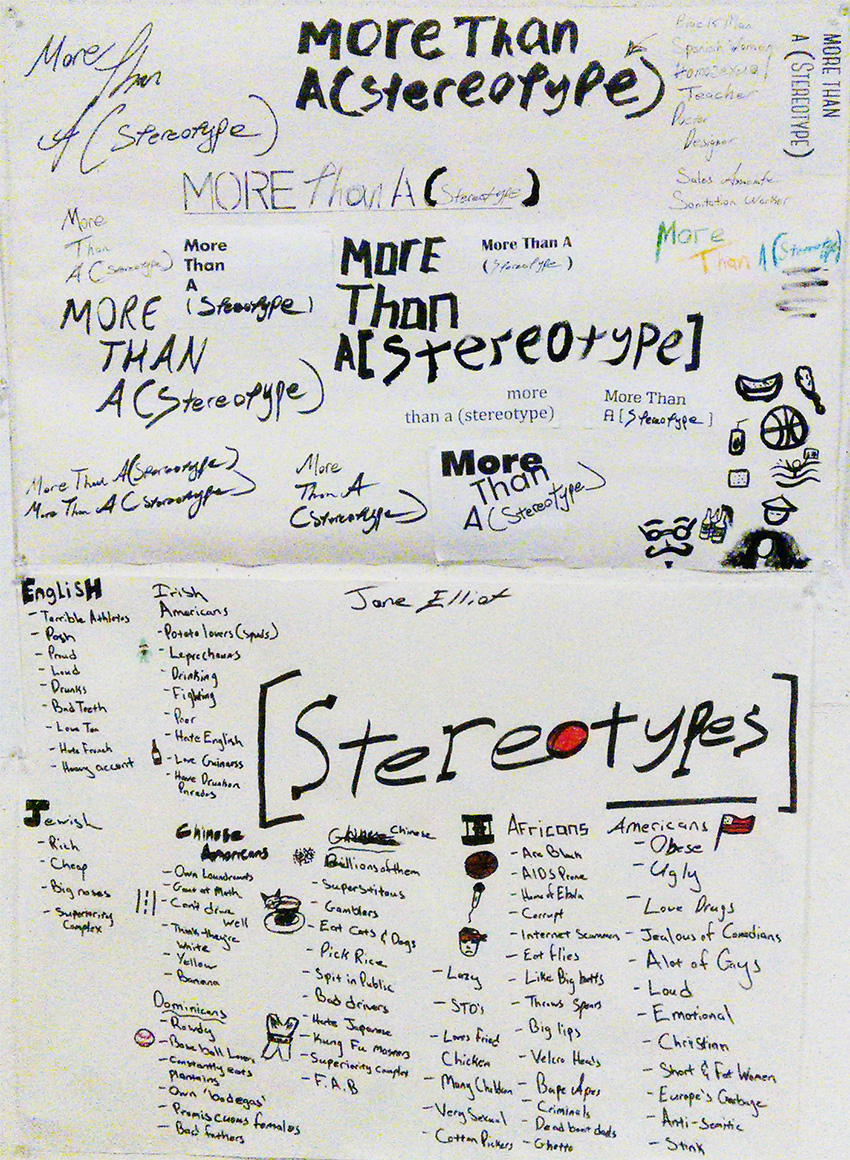 More
Than
A (Stereotype)
More Than
A(Stereotype)
Black Man
Spanish Woman
Homosexual
Teacher
Doctor
Designer
Sales Associate
Sanitation Worker
MORE THAN
A (STEREOTYPE)
MORE Than A (Stereotype)
More
Than
A (Stereotype)
More
Than
A
(Stereotype)
MORE
Than
A[Stereotype]
More Than A
(Stereotype)
More
Than A (Stereotype)
MORE
THAN
A (Stereotype)
more
than a (stereotype)
More Than
A [Stereotype]
More Than A(Stereotype)
More Than A (Stereotype)
More
Than A
(Stereotype)
More
Than
A (Stereotype)
Jane Elliot
[Stereotypes]
EngLisH
- Terrible Athletes
- Posh
- Proud
- Loud
- Drunks
- Bad Teeth
- Love Tea
- Hate French
- Heavy accent
Irish
Americans
- Potato lovers (spuds)
- Leprechauns
- Drinking
- Fighting
- Poor
- Hate English
- Love Guinness
- Have Drunken
Parades
Jewish
- Rich
- Cheap
- Big noses
- Superiority
Complex
Chinese
Americans
- Own Laundromats
- Good at Math
- Can't drive
well
- Think they're
white
- Yellow
- Banana
Dominicans
- Rowdy
- Baseball Lovers
- Constantly eats
plantains
- Own 'bodegas'
- Promiscuous females
- Bad fathers
Chinese
- Billions of them
- Superstitous
- Gamblers
- Eat Cats & Dogs
- Pick Rice
- Spit in Public
- Bad drivers
- Hate Japanese
- Kung Fu Masters
- Superiority Complex
- F.A.B
Africans
- Are Black
- AIDS Prone
- Home of Ebola
- Corrupt
- Internet Scammers
- Eat flies
- Like Big butts
- Throws Spears
- Big lips
- Velcro Heads
- Bape Apes
- Criminals
- Dead beat dads
- Ghetto
- Lazy
- STD's
- Loves fried
Chicken
- Many Children
- Very Sexual
- Cotton Pickers
Americans
- Obese
- Ugly
- Love Drugs
- Jealous of Canadians
- Alot of Gays
- Loud
- Emotional
- Christian
- Short & Fat Women
- Europe's Garbage
- Anti-Semitic
- Stink